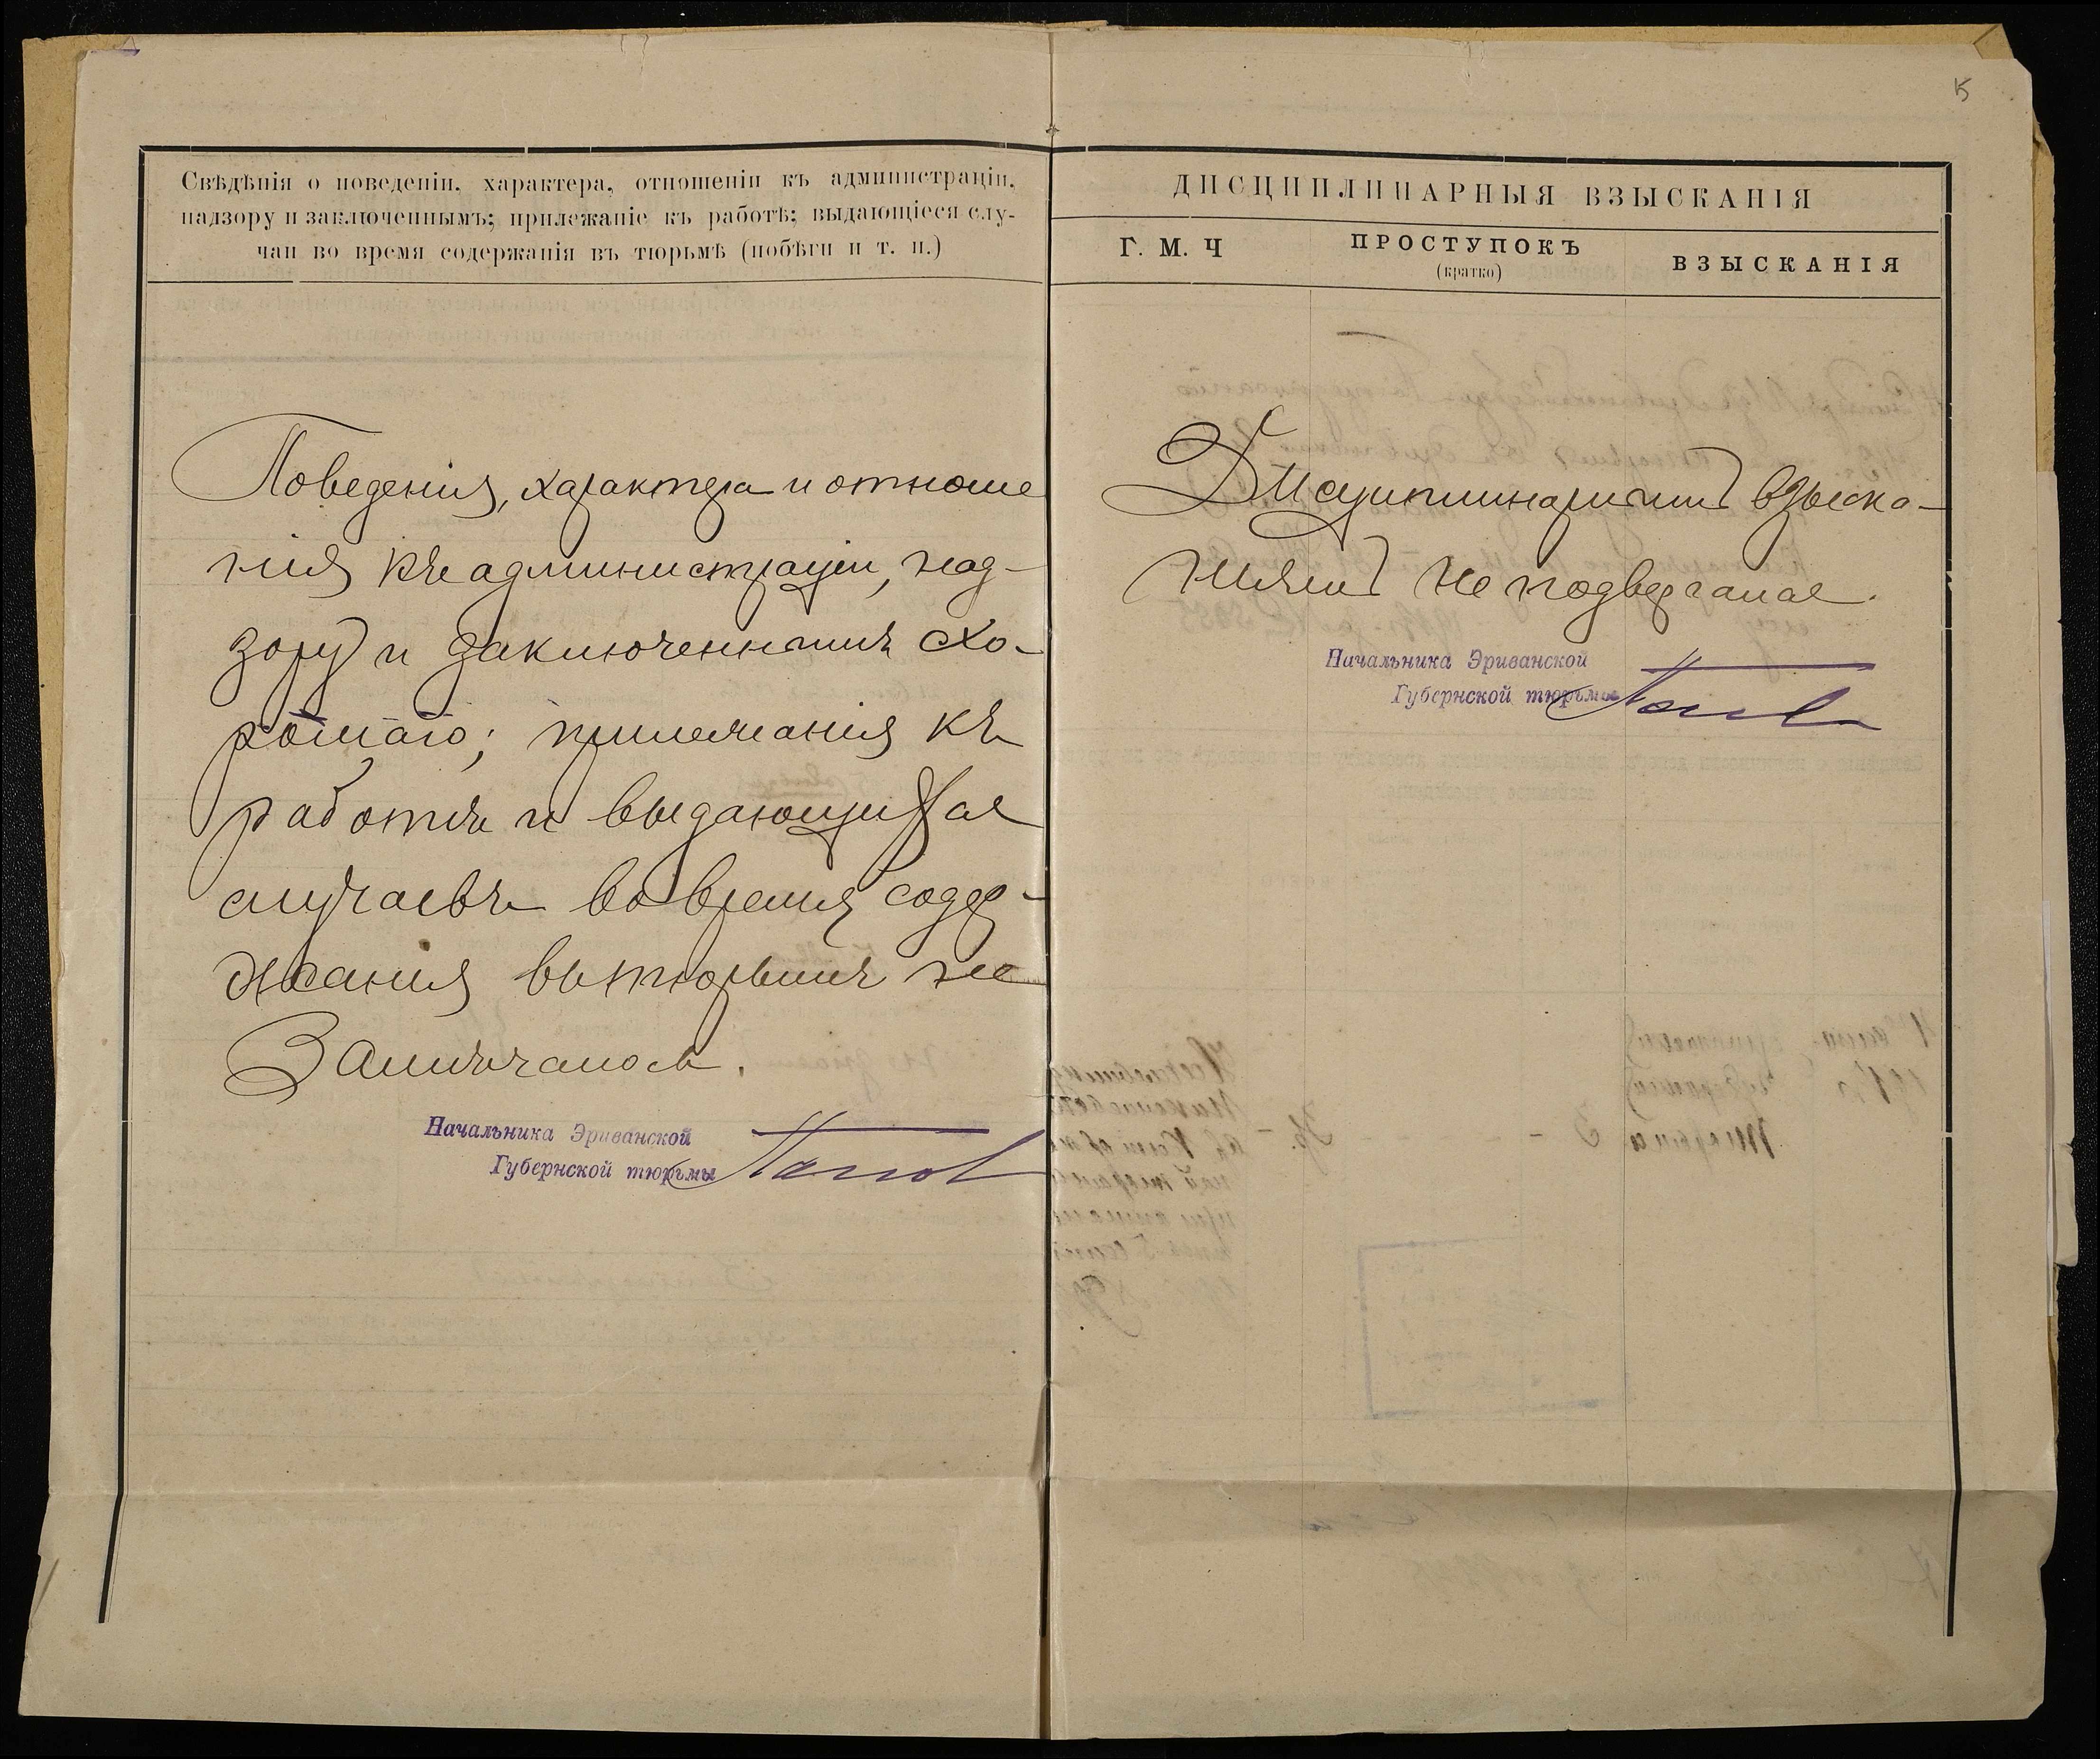 5
Свѣдѣнія о поведеніи, характера, отношеніи къ администраціи,
надзору и заключеннымъ; прилежаніе къ работѣ; выдающіеся слу-
чаи во время содержанія въ тюрьмѣ (побѣги и т. п.)
Поведенія, характера и отноше
нія къ администраціи, над-
зору и заключеннымъ схо-
рошаго; прилежанія къ
работѣ и выдающихся
случаевъ во время содер-
жанія въ тюрьмѣ не
замѣчалось.
Начальника Эриванской
Губернской тюрьмы
ДИСЦИПЛИНАРНЫЯ ВЗЫСКАНІЯ
Г. М. Ч
ПРОСТУПОКЪ
(кратко)
ВЗЫСКАНІЯ
Дисциплинарнымъ взыска-
ніямъ не подвергался.
Начальника Эриванской
Губернской тюрьмы